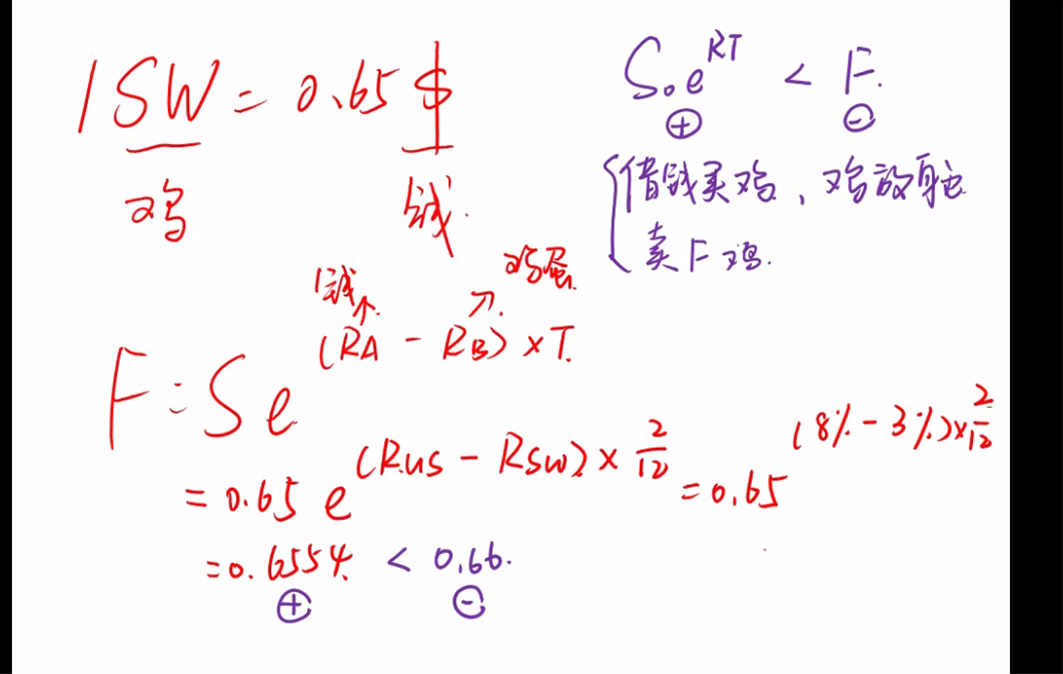 1SW = 0.65$
鸡 钱.
S₀e^{RT} < F.
⊕ ⊖
借钱买鸡、鸡放身边
卖F鸡.
钱↑. 鸡蛋↗.
F = Se^{(RA - RB) × T.}
= 0.65 e^{(Rus - Rsw) × 2/12} = 0.65^{(8% - 3%)×2/12}
= 0.6554. < 0.66.
⊕ ⊖